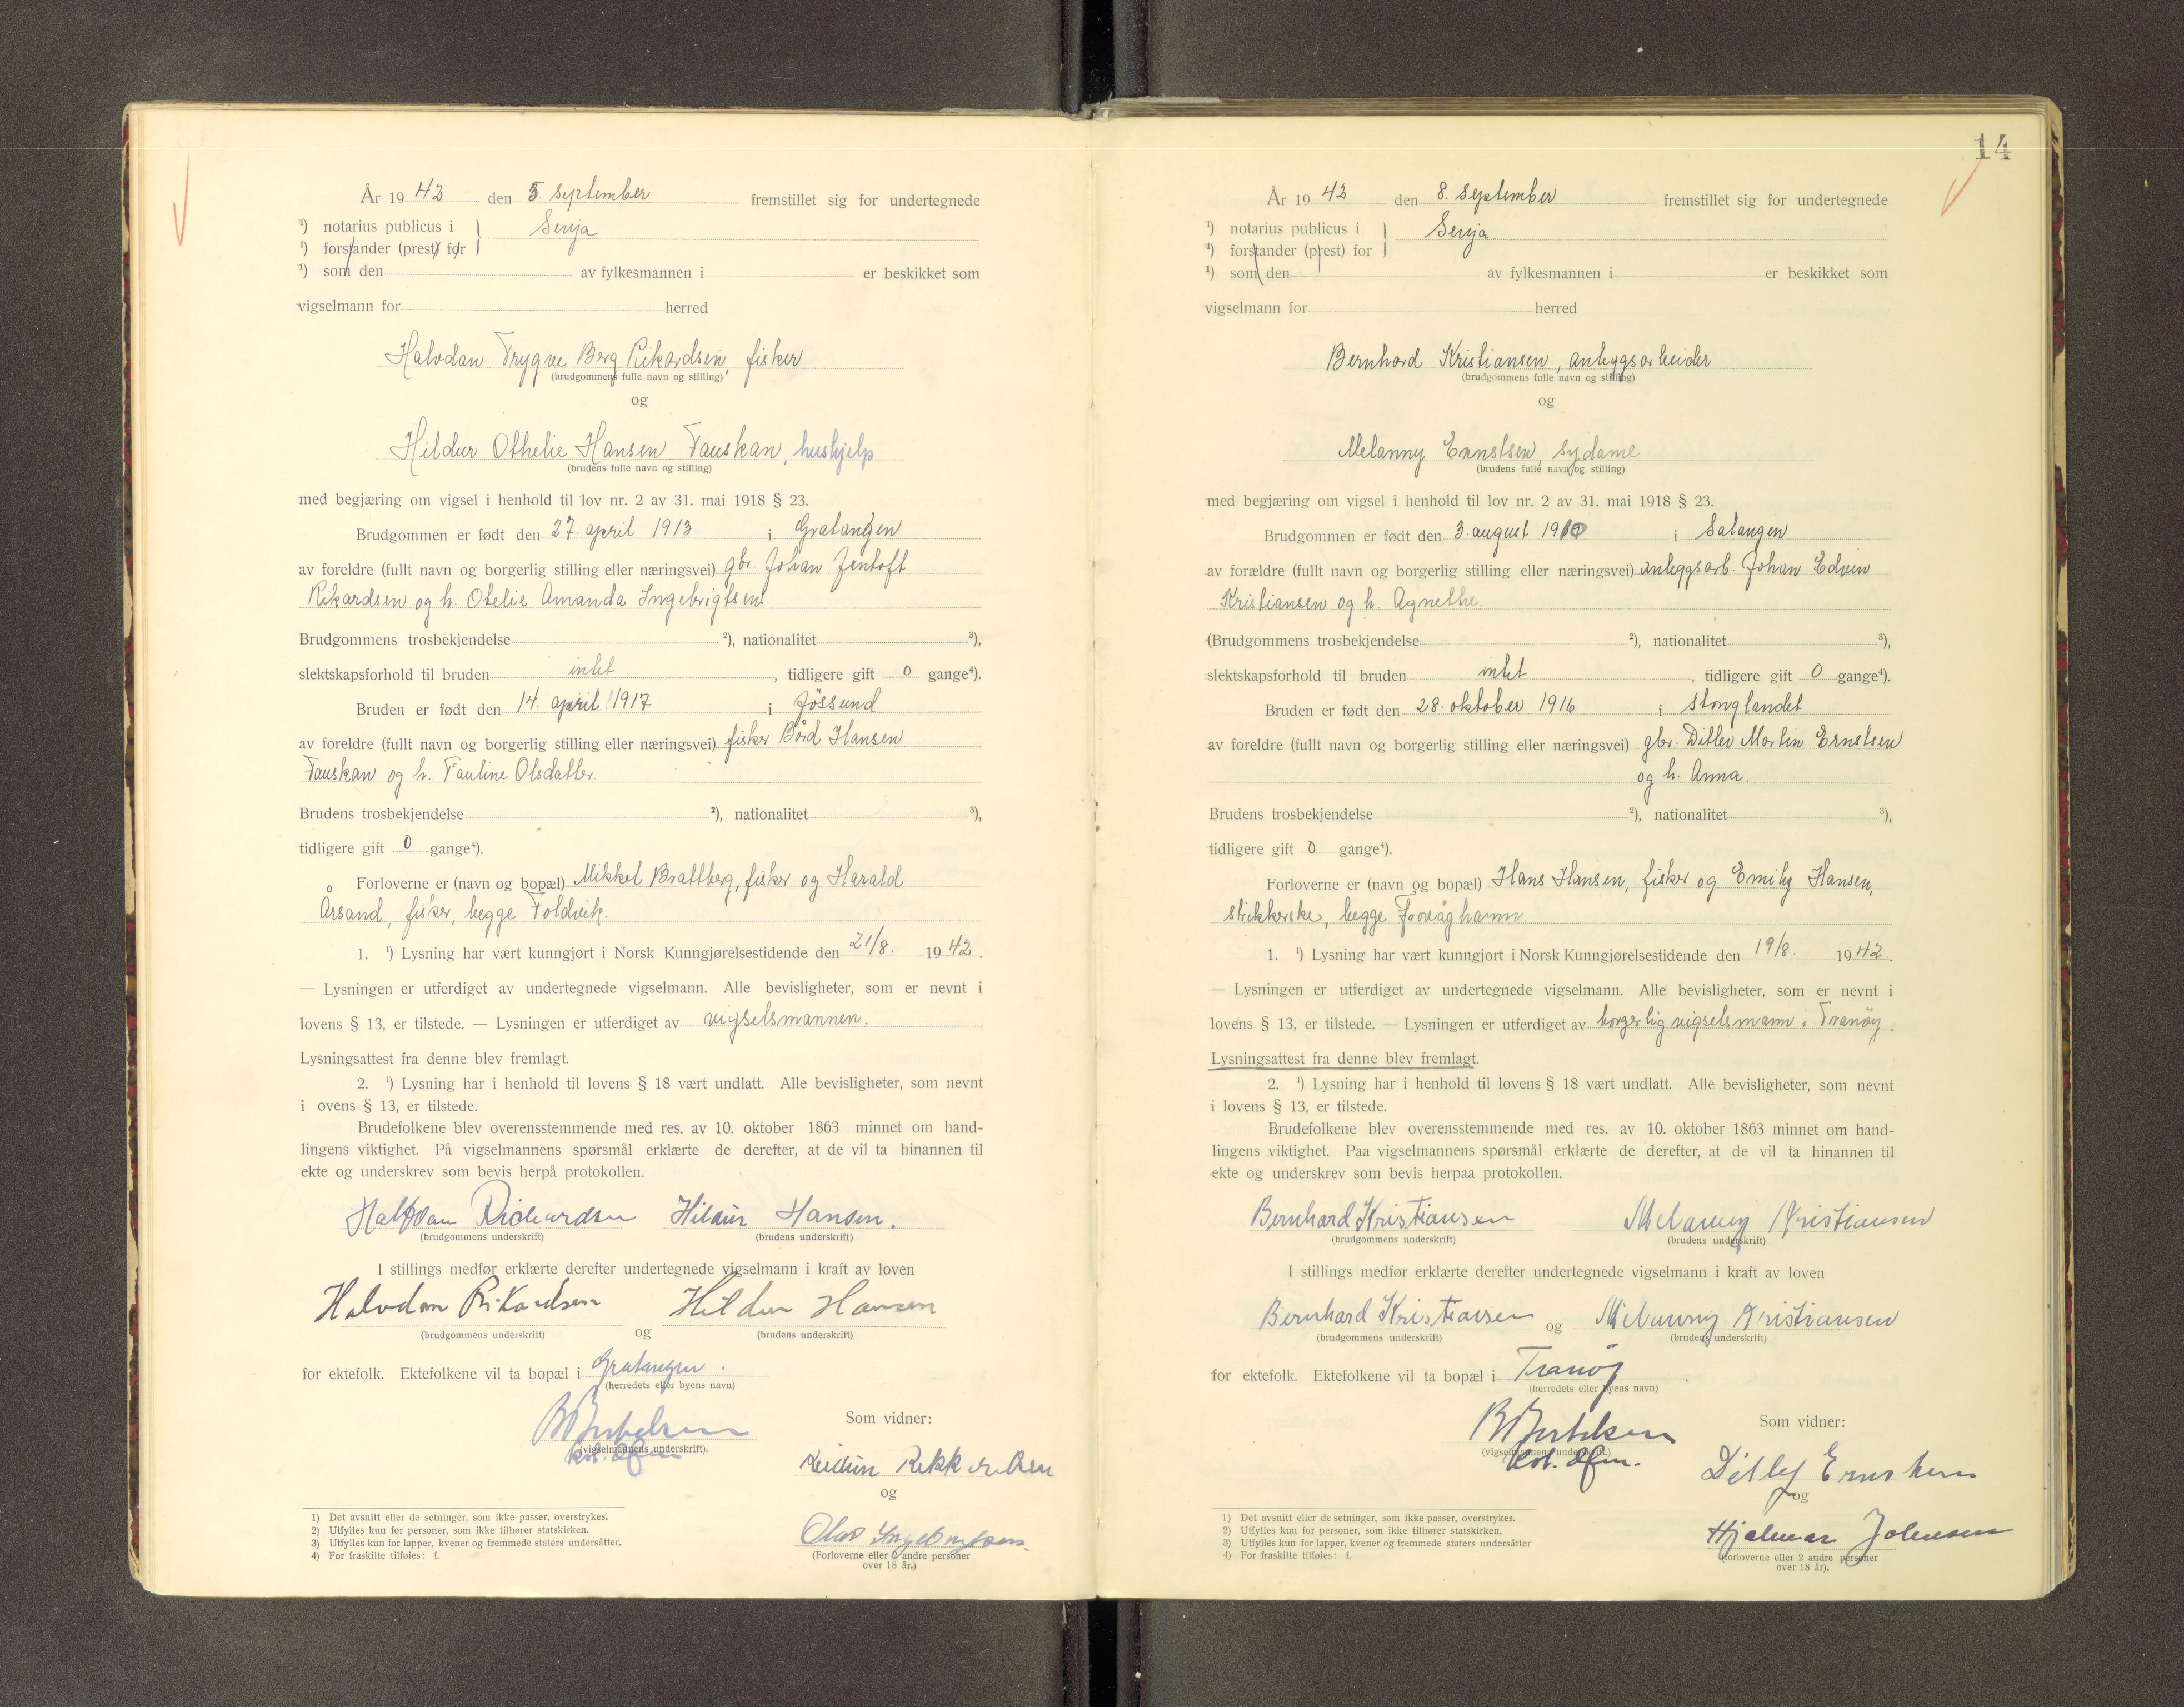 År 19 42 den 5. september fremstillet sig for undertegnede
¹) notarius publicus i } Senja
¹) forstander (prest) for
¹) som den av fylkesmannen i er beskikket som
vigselmann for herred
Halvdan Trygve Berg Rikardsen, fisker
(brudgommens fulle navn og stilling)
og
Hildur Othelie Hansen Fauskan, hushjelp
(brudens fulle navn og stilling)
med begjæring om vigsel i henhold til lov nr. 2 av 31. mai 1918 § 23.
Brudgommen er født den 27. april 1913 i Gratangen
av foreldre (fullt navn og borgerlig stilling eller næringsvei) gbr. Johan Jentoft
Rikardsen og h. Otelie Amanda Ingebrigtsen
Brudgommens trosbekjendelse ²), nationalitet ³),
slektskapsforhold til bruden intet, tidligere gift 0 gange⁴).
Bruden er født den 14. april 1917 i Jössund
av foreldre (fullt navn og borgerlig stilling eller næringsvei) fisker Bård Hansen
Fauskan og h. Pauline Olsdatter.
Brudens trosbekjendelse ²), nationalitet ³),
tidligere gift 0 gange⁴).
Forloverne er (navn og bopæl) Mikkel Brattberg, fisker og Harald
Årsand, fisker, begge Foldvik.
1. ¹) Lysning har vært kunngjort i Norsk Kunngjørelsestidende den 21/8. 19 42.
— Lysningen er utferdiget av undertegnede vigselmann. Alle bevisligheter, som er nevnt i
lovens § 13, er tilstede. — Lysningen er utferdiget av vigselsmannen.
Lysningsattest fra denne blev fremlagt.
2. ¹) Lysning har i henhold til lovens § 18 vært undlatt. Alle bevisligheter, som nevnt
i ovens § 13, er tilstede.
Brudefolkene blev overensstemmende med res. av 10. oktober 1863 minnet om hand-
lingens viktighet. På vigselmannens spørsmål erklærte de derefter, at de vil ta hinannen til
ekte og underskrev som bevis herpå protokollen.
Halfdan Richardsen Hildur Hansen.
(brudgommens underskrift) (brudens underskrift)
I stillings medfør erklærte derefter undertegnede vigselmann i kraft av loven
Halvdan Rikardsen og Hildur Hansen
(brudgommens underskrift) (brudens underskrift)
for ektefolk. Ektefolkene vil ta bopæl i Gratangen.
(herredets eller byens navn)
Som vidner:
(vigselmannens underskrift).
og
Olav Ingebrigtsen.
(Forloverne eller 2 andre personer
over 18 år.)
1) Det avsnitt eller de setninger, som ikke passer, overstrykes.
2) Utfylles kun for personer, som ikke tilhører statskirken.
3) Utfylles kun for lapper, kvener og fremmede staters undersåtter.
4) For fraskilte tilføies: f.
14
År 19 42 den 8. september fremstillet sig for undertegnede
¹) notarius publicus i } Senja.
¹) forstander (prest) for
¹) som den av fylkesmannen i er beskikket som
vigselmann for herred
Bernhard Kristiansen, anleggsarbeider
(brudgommens fulle navn og stilling)
og
Melanny Ernstsen, sydame
(brudens fulle navn og stilling)
med begjæring om vigsel i henhold til lov nr. 2 av 31. mai 1918 § 23.
Brudgommen er født den 3. august 1910 i Salangen
av forældre (fullt navn og borgerlig stilling eller næringsvei) anleggsarb. Johan Edvin
Kristiansen og h. Agnethe.
(Brudgommens trosbekjendelse ²), nationalitet ³),
slektskapsforhold til bruden intet, tidligere gift 0 gange⁴).
Bruden er født den 28. oktober 1916 i Stonglandet
av foreldre (fullt navn og borgerlig stilling eller næringsvei) gbr. Ditlev Martin Ernstsen
og h. Anna.
Brudens trosbekjendelse ²), nationalitet ³),
tidligere gift 0 gange⁴).
Forloverne er (navn og bopæl) Hans Hansen, fisker og Emily Hansen,
strikkerske, begge Frovåghamn.
1. ¹) Lysning har vært kunngjort i Norsk Kunngjørelsestidende den 19/8. 19 42.
— Lysningen er utferdiget av undertegnede vigselmann. Alle bevisligheter, som er nevnt i
lovens § 13, er tilstede. — Lysningen er utferdiget av borgerlig vigselsmann i Tranøy.
Lysningsattest fra denne blev fremlagt.
2. ¹) Lysning har i henhold til lovens § 18 vært undlatt. Alle bevisligheter, som nevnt
i lovens § 13, er tilstede.
Brudefolkene blev overensstemmende med res. av 10. oktober 1863 minnet om hand-
lingens viktighet. Paa vigselmannens spørsmål erklærte de derefter, at de vil ta hinannen til
ekte og underskrev som bevis herpaa protokollen.
Bernhard Kristiansen Melanny Kristiansen
(brudgommens underskrift) (brudens underskrift)
I stillings medfør erklærte derefter undertegnede vigselmann i kraft av loven
Bernhard Kristiansen og Melanny Kristiansen
(brudgommens underskrift) (brudens underskrift)
for ektefolk. Ektefolkene vil ta bopæl i Tranøy.
(herredets eller byens navn)
Som vidner:
(vigselmannens underskrift.)
Ditlef Ernstsen
og
Hjalmar Johansen
(forloverne eller 2 andre personer
over 18 år).
1) Det avsnitt eller de setninger, som ikke passer, overstrykes.
2) Utfylles kun for personer, som ikke tilhører statskirken.
3) Utfylles kun for lapper, kvener og fremmede staters undersåtter
4) For fraskilte tilføies: f.